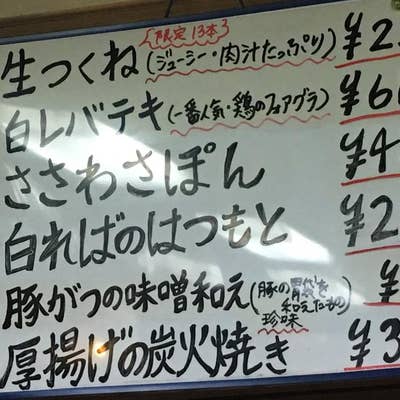 限定13本
生つくね(ジューシー・肉汁たっぷり) ¥2
白レバテキ(一番人気・鶏のフォアグラ) ¥6
ささわさぽん ¥4
白ればのはつもと ¥2
豚がつの味噌和え(豚の胃袋を和えたもの)珍味 ¥
厚揚げの炭火焼き ¥3